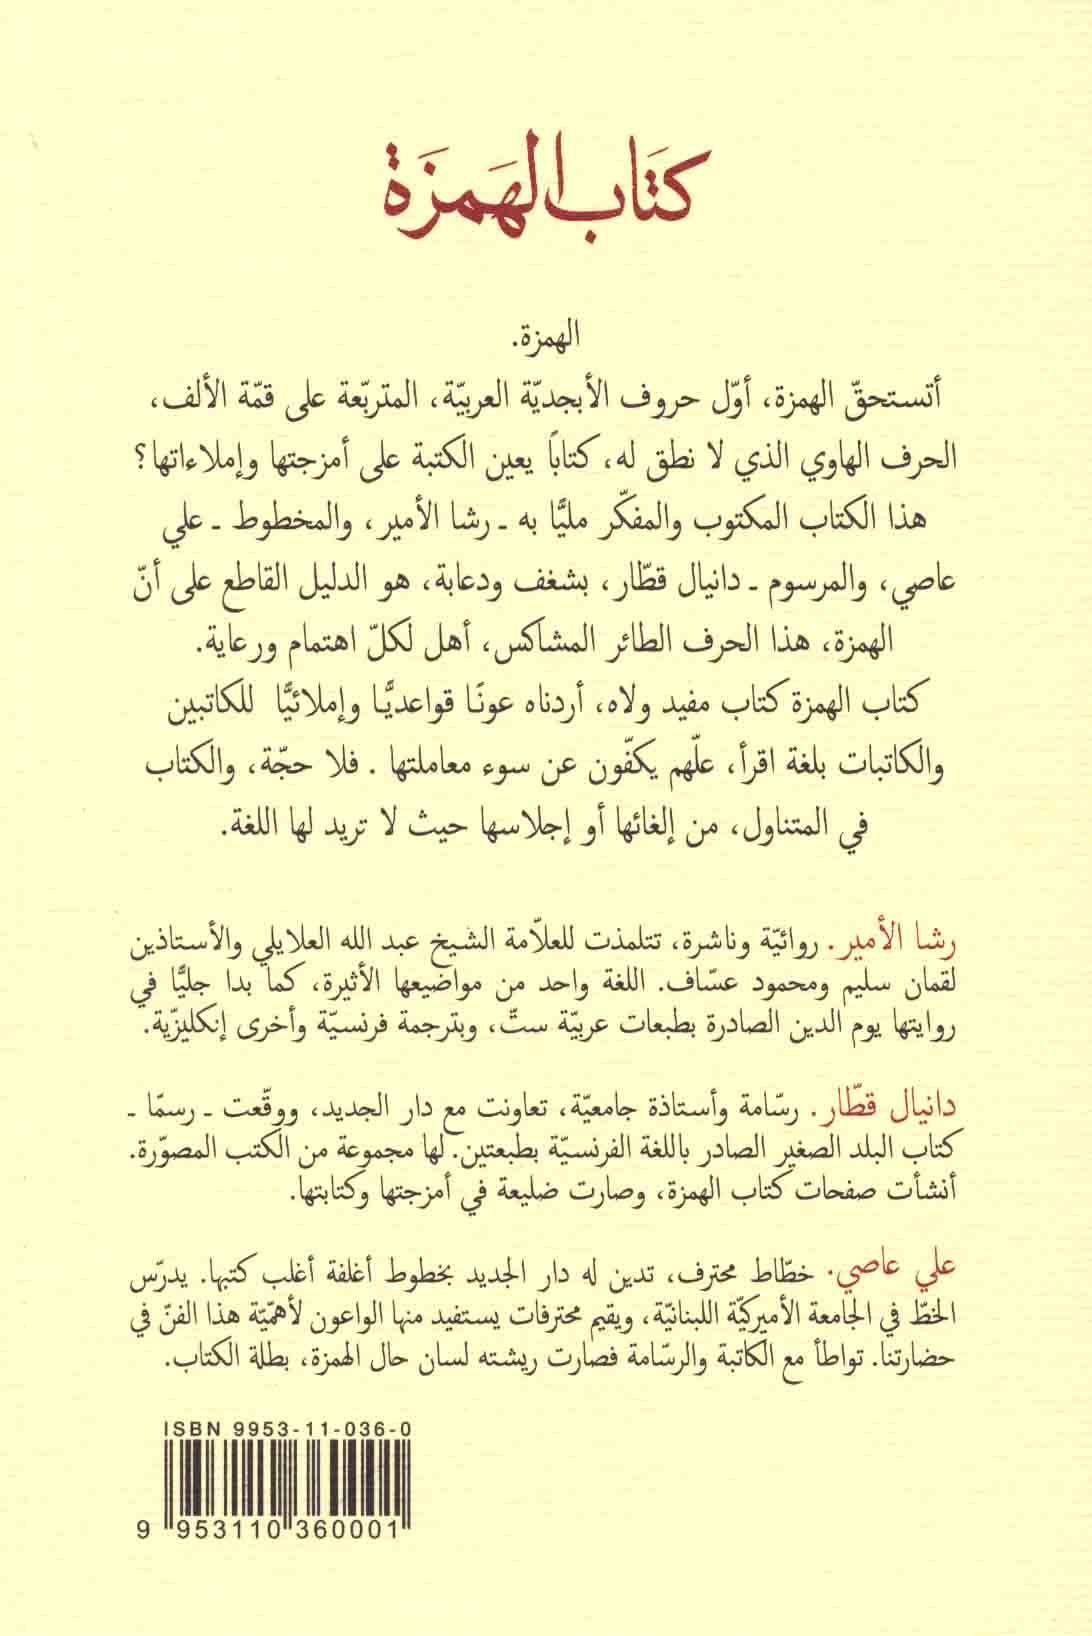 كتاب الهمزة
الهمزة.
أتستحقّ الهمزة، أوّل حروف الأبجديّة العربيّة، المتربّعة على قمّة الألف،
الحرف الهاوي الذي لا نطق له، كتابًا يعين الكتبة على أمزجتها وإملاءاتها؟
هذا الكتاب المكتوب والمفكّر مليًّا به ـ رشا الأمير، والمخطوط ـ علي
عاصي، والمرسوم ـ دانيال قطّار، بشغف ودعابة، هو الدليل القاطع على أنّ
الهمزة، هذا الحرف الطائر المشاكس، أهل لكلّ اهتمام ورعاية.
كتاب الهمزة كتاب مفيد ولاه، أردناه عونًا قواعديًّا وإملائيًّا للكاتبين
والكاتبات بلغة اقرأ، علّهم يكفّون عن سوء معاملتها . فلا حجّة، والكتاب
في المتناول، من إلغائها أو إجلاسها حيث لا تريد لها اللغة.
رشا الأمير. روائيّة وناشرة، تتلمذت للعلاّمة الشيخ عبد الله العلايلي والأستاذين
لقمان سليم ومحمود عسّاف. اللغة واحد من مواضيعها الأثيرة، كما بدا جليًّا في
روايتها يوم الدين الصادرة بطبعات عربيّة ستّ، وبترجمة فرنسيّة وأخرى إنكليزّية.
دانيال قطّار. رسّامة وأستاذة جامعيّة، تعاونت مع دار الجديد، ووقّعت ـ رسمًا ـ
كتاب البلد الصغير الصادر باللغة الفرنسيّة بطبعتين. لها مجموعة من الكتب المصوّرة.
أنشأت صفحات كتاب الهمزة، وصارت ضليعة في أمزجتها وكتابتها.
علي عاصي. خطّاط محترف، تدين له دار الجديد بخطوط أغلفة أغلب كتبها. يدرّس
الخطّ في الجامعة الأميركيّة اللبنانيّة، ويقيم محترفات يستفيد منها الواعون لأهمّيّة هذا الفنّ في
حضارتنا. تواطأ مع الكاتبة والرسّامة فصارت ريشته لسان حال الهمزة، بطلة الكتاب.
ISBN 9953-11-036-0
9 953110 360001